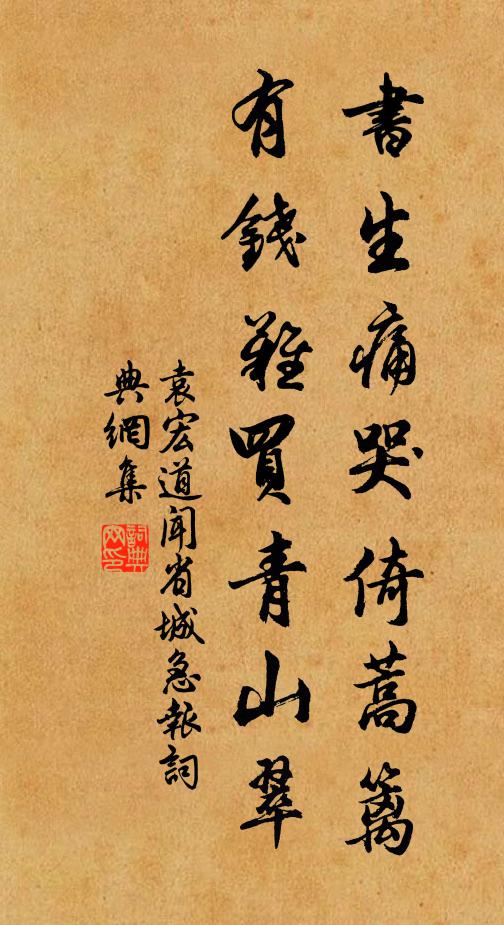 書生痛哭倚蒿籬
有錢難買青山翠
袁宏道聞省城急報詞
典網集
詞典網印